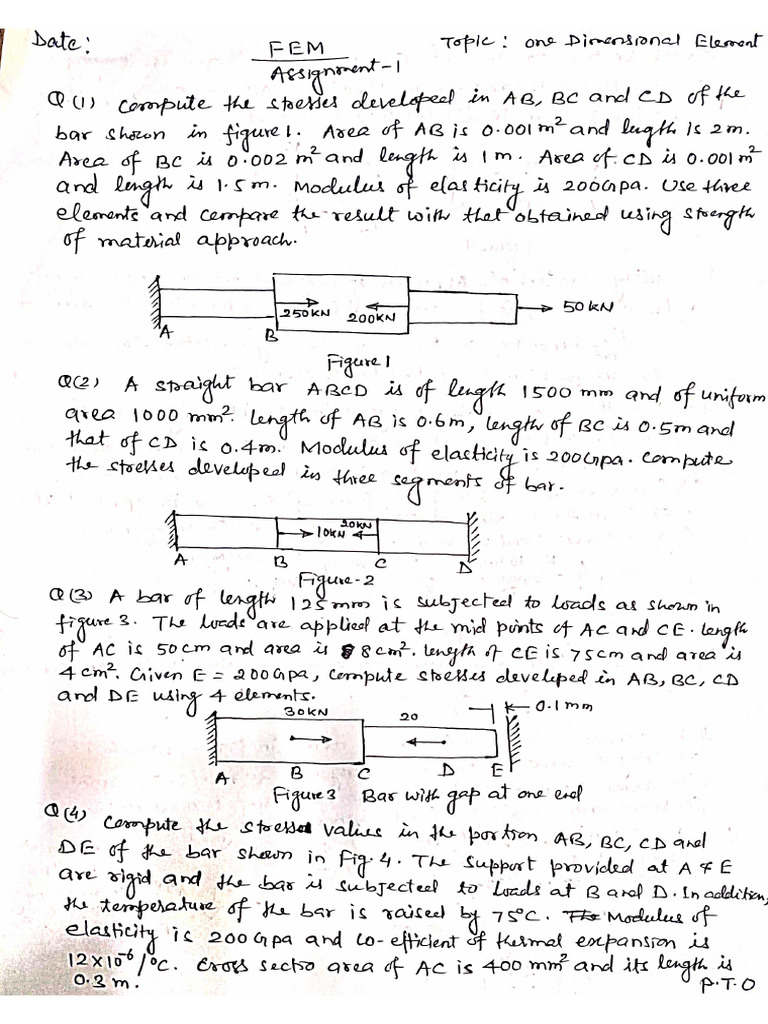 Date:
FEM
Topic: one Dimensional Element
Assignment-1
Q(1) Compute the stresses developed in AB, BC and CD of the
bar shown in figure 1. Area of AB is 0.001 m² and length is 2m.
Area of BC is 0.002 m² and length is 1m. Area of CD is 0.001 m²
and length is 1.5m. Modulus of elasticity is 200Gpa. Use three
elements and compare the result with that obtained using strength
of material approach.
250KN 200KN 50KN
A B
Figure 1
Q(2) A straight bar ABCD is of length 1500 mm and of uniform
area 1000 mm². Length of AB is 0.6m, length of BC is 0.5m and
that of CD is 0.4m. Modulus of elasticity is 200Gpa. Compute
the stresses developed in three segments of bar.
10KN 20KN
A B C D
Figure-2
Q(3) A bar of length 125mm is subjected to loads as shown in
figure 3. The loads are applied at the mid points of AC and CE. length
of AC is 50cm and area is 8cm². length of CE is 75cm and area is
4cm². Given E = 200Gpa, compute stresses developed in AB, BC, CD
and DE using 4 elements.
30KN 20 0.1mm
A B C D E
Figure 3 Bar with gap at one end
Q(4) Compute the stress values in the portion AB, BC, CD and
DE of the bar shown in Fig. 4. The support provided at A & E
are rigid and the bar is subjected to loads at B and D. In addition,
the temperature of the bar is raised by 75°C. The Modulus of
elasticity is 200 Gpa and co-efficient of thermal expansion is
12×10⁻⁶/°C. Cross sectio area of AC is 400 mm² and its length is
0.3m.
P.T.O